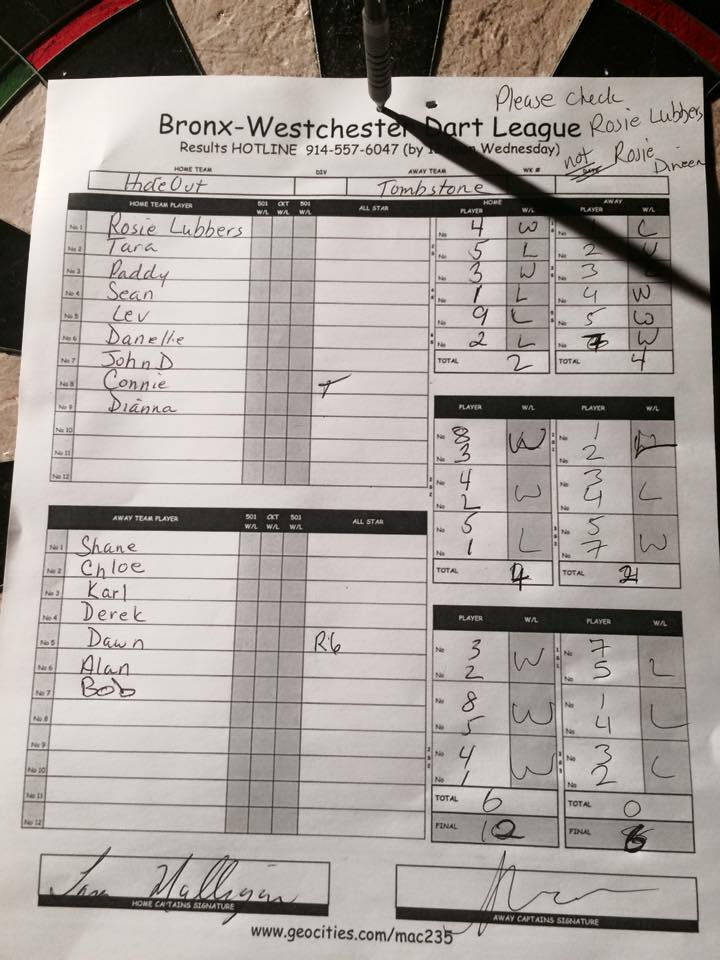 Please check
Rosie Lubbers
not Rosie
Dineen
Bronx-Westchester Dart League
Results HOTLINE 914-557-6047 (by Wednesday)
HOME TEAM DIV AWAY TEAM WK #
HideOut Tombstone
HOME TEAM PLAYER 501 W/L CKT W/L 501 W/L ALL STAR
No 1 Rosie Lubbers
No 2 Tara
No 3 Paddy
No 4 Sean
No 5 Lev
No 6 Danelle
No 7 John D
No 8 Connie
No 9 Dianna
No 10
No 11
No 12
HOME AWAY
PLAYER W/L PLAYER W/L
No 4 W No L
No 5 L No 2
No 3 W No 3
No 1 L No 4 W
No 9 L No 5 W
No 2 L No W
TOTAL 2 TOTAL 4
PLAYER W/L PLAYER W/L
No 8 W No 1
No 3 No 2
No 4 W No 3 L
No 2 No 4
No 5 L No 5 W
No 1 No 7
TOTAL 4 TOTAL 2
AWAY TEAM PLAYER 501 W/L CKT W/L 501 W/L ALL STAR
No 1 Shane
No 2 Chloe
No 3 Karl
No 4 Derek
No 5 Dawn R6
No 6 Alan
No 7 Bob
No 8
No 9
No 10
No 11
No 12
PLAYER W/L PLAYER W/L
No 3 W No 7 L
No 2 No 5
No 8 W No 1 L
No 5 No 4
No 4 W No 3 L
No 1 No 2
TOTAL 6 TOTAL 0
FINAL 12 FINAL 6
HOME CAPTAINS SIGNATURE AWAY CAPTAINS SIGNATURE
www.geocities.com/mac235